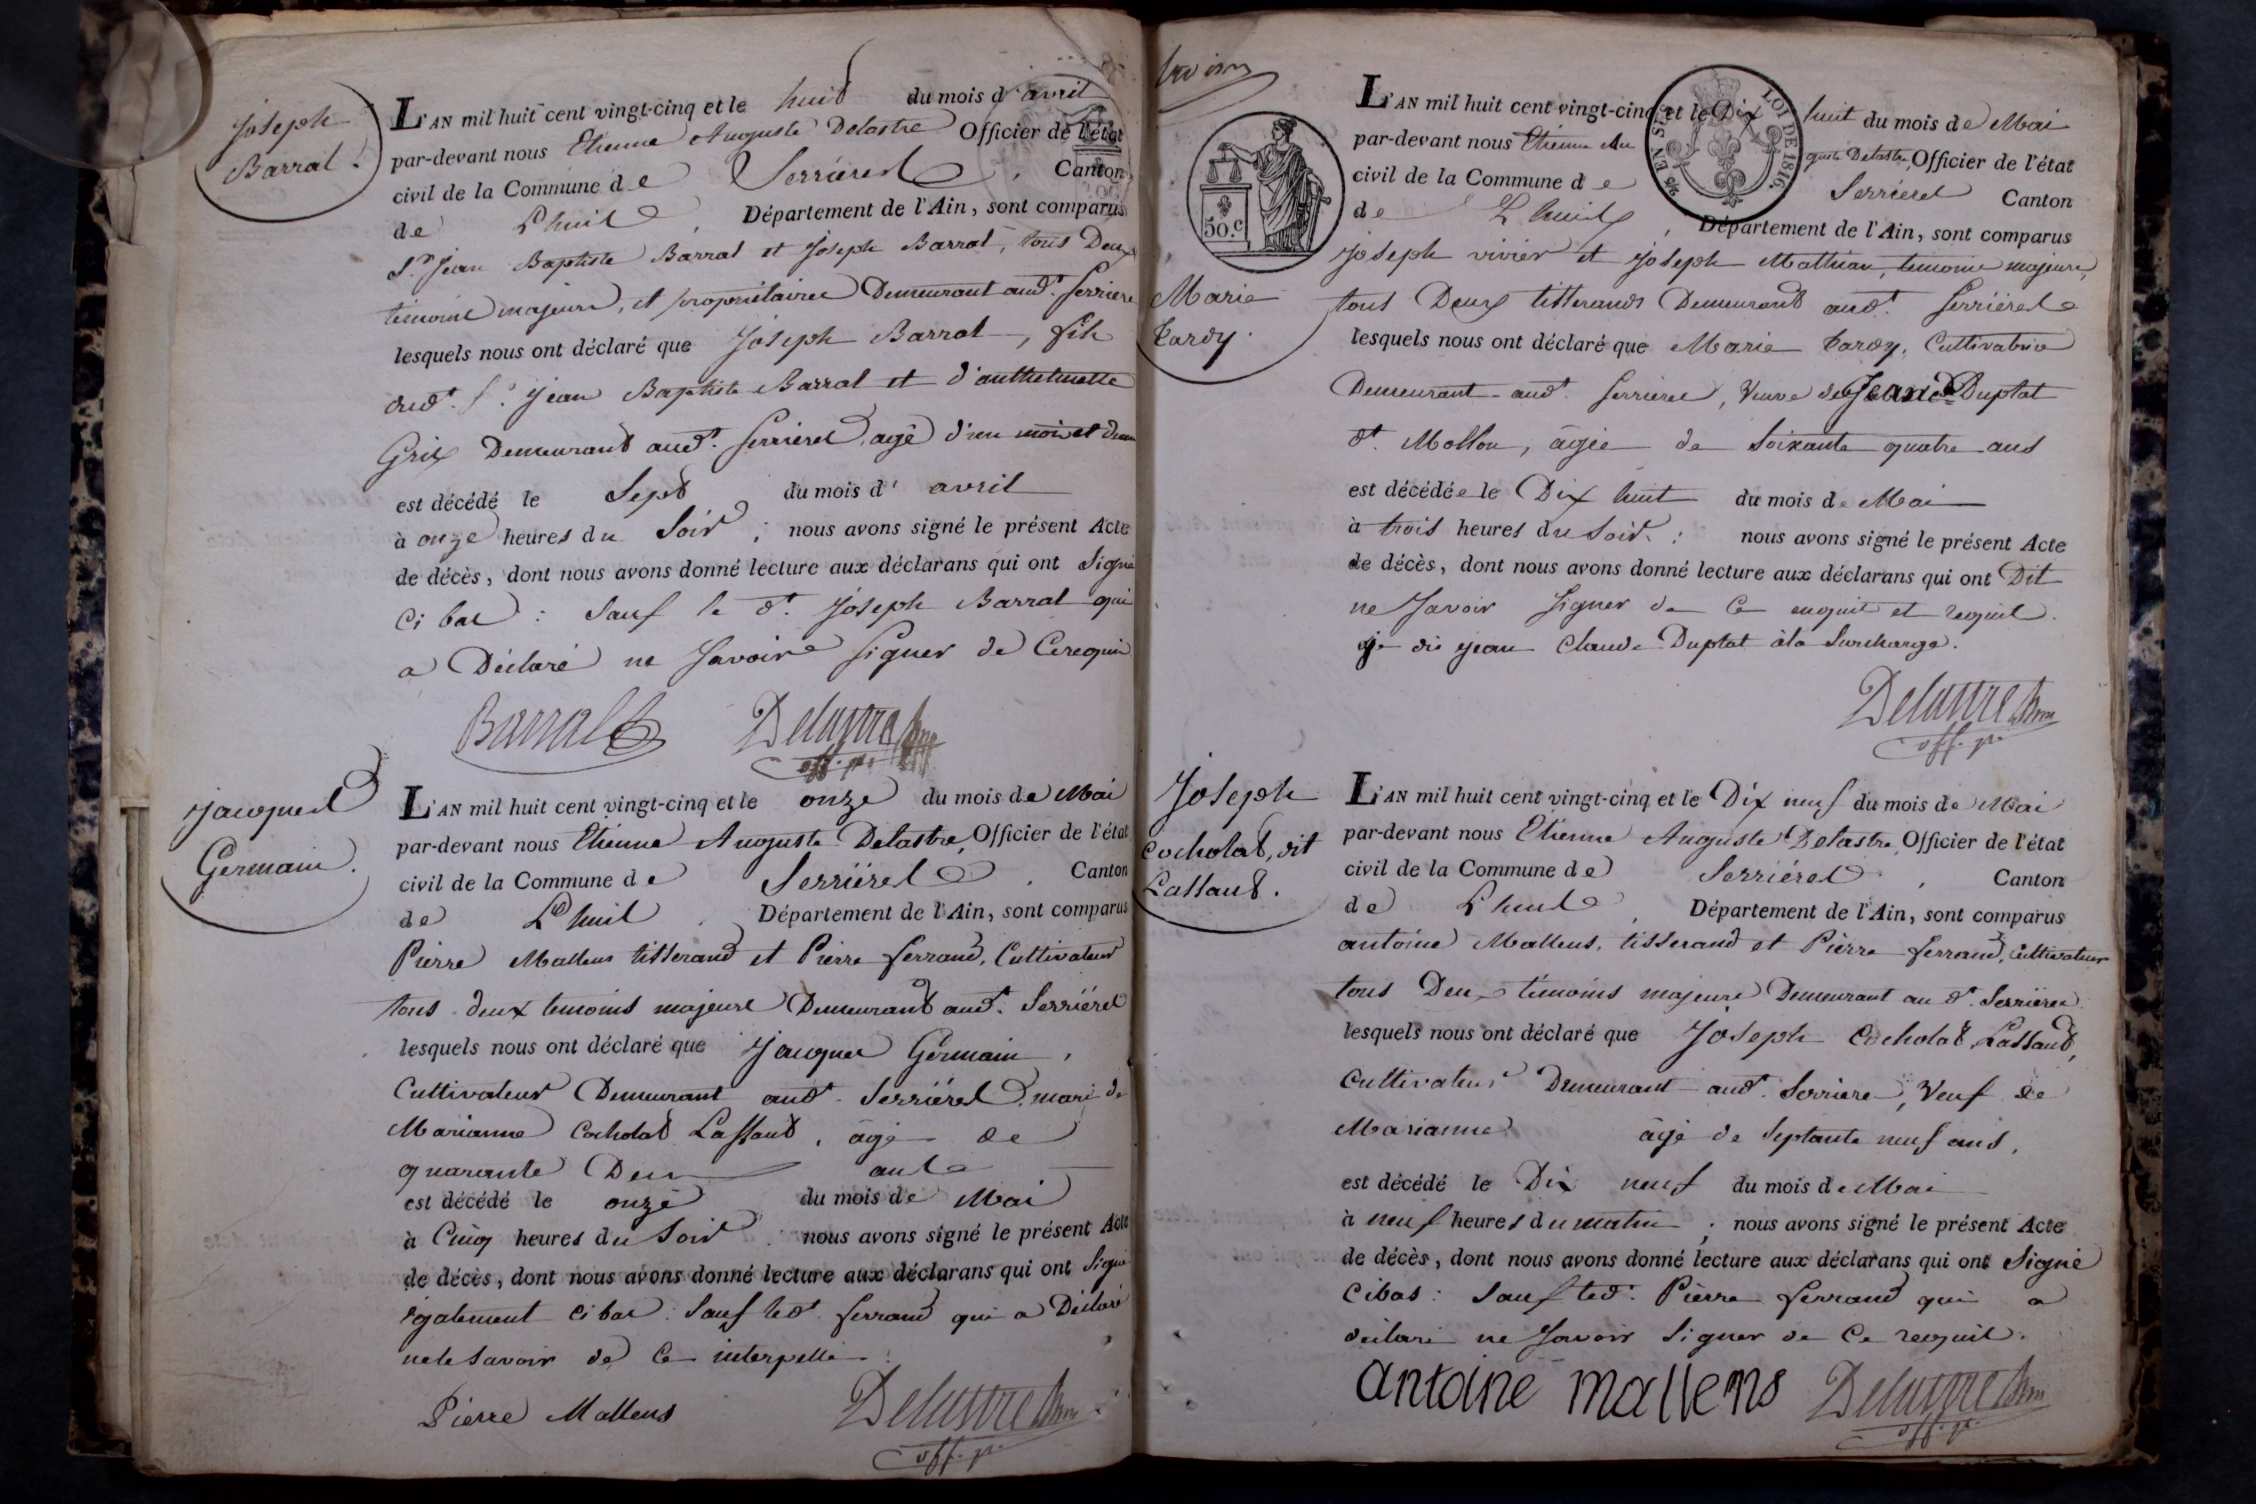 Joseph
Barral.
L'AN mil huit cent vingt-cinq et le huit du mois d'avril
par-devant nous Etienne Auguste Delastre Officier de l'état
civil de la Commune de Serrieres, Canton
de Lhuis Département de l'Ain, sont comparus
Sr. Jean Baptiste Barral et Joseph Barral, tous Deux
témoins majeurs, et propriétaires Demeurant aud. Serriere
lesquels nous ont déclaré que Joseph Barral, fils
dud. Sr. Jean Baptiste Barral et d'anthelmette
Grix Demeurant aud. Serrieres, agé d'un mois et demi
est décédé le Sept du mois d'avril
à onze heures du Soir; nous avons signé le présent Acte
de décès, dont nous avons donné lecture aux déclarans qui ont Signé
ci bas: Sauf le dt. Joseph Barral qui
a Déclaré ne Savoir Signer de Ce requis
Barral Delastre
off. p.
Jacques
Germain.
L'AN mil huit cent vingt-cinq et le onze du mois de Mai
par-devant nous Etienne Auguste Delastre, Officier de l'état
civil de la Commune de Serrières, Canton
de Lhuis Département de l'Ain, sont comparus
Pierre Mallens tisserand et Pierre ferrand, Cultivateur
tous deux temoins majeurs Demeurant aud. Serriéres
lesquels nous ont déclaré que Jacques Germain,
Cultivateur Demeurant aud. Serriéres, mari de
Marianne Cocholat Lassaut, âgé de
quarante Deux ans
est décédé le onze du mois de Mai
à Cinq heures du Soir nous avons signé le présent Acte
de décès, dont nous avons donné lecture aux déclarans qui ont Signé
également ci bas: Sauf led. ferrand qui a Déclaré
ne le savoir de Ce interpellé.
Pierre Mallens Delastre
off. p.
Marie
tardy.
L'AN mil huit cent vingt-cinq et le Dix huit du mois de Mai
par-devant nous Etienne Auguste Delastre, Officier de l'état
civil de la Commune de Serriéres Canton
de Lhuis, Département de l'Ain, sont comparus
LOI DE 1816.
50.c
Joseph vivier et Joseph Mathieu, temoins majeurs,
tous Deux tisserands Demeurant aud. Serriéres
lesquels nous ont déclaré que Marie tardy, Cultivatrice
Demeurant aud. Serrieres, Veuve de Jean Cde Duplat
dt. Mollon, âgée de Soixante quatre ans
est décédée le Dix huit du mois de Mai
à trois heures du Soir: nous avons signé le présent Acte
de décès, dont nous avons donné lecture aux déclarans qui ont Dit
ne Savoir Signer de Ce enquis et requis.
je dis jean Claude Duplat à la Surcharge.
Delastre
off. p.
Joseph
Cocholat, dit
Lassaut.
L'AN mil huit cent vingt-cinq et le Dix neuf du mois de Mai
par-devant nous Etienne Auguste Delastre, Officier de l'état
civil de la Commune de Serriéres, Canton
de Lhuis, Département de l'Ain, sont comparus
antoine Mallens, tisserand et Pierre ferrand, Cultivateur
tous Deux témoins majeurs Demeurant au dt. Serriéres
lesquels nous ont déclaré que Joseph Cocholat Lassaut,
Cultivateur Demeurant aud. Serriere, Veuf de
Marianne âgé de Septante neuf ans,
est décédé le Dix neuf du mois de Mai
à neuf heures du matin; nous avons signé le présent Acte
de décès, dont nous avons donné lecture aux déclarans qui ont Signé
Cibas: Sauf led. Pierre ferrand qui a
déclaré ne Savoir Signer de Ce requis.
antoine mallens Delastre
off. p.